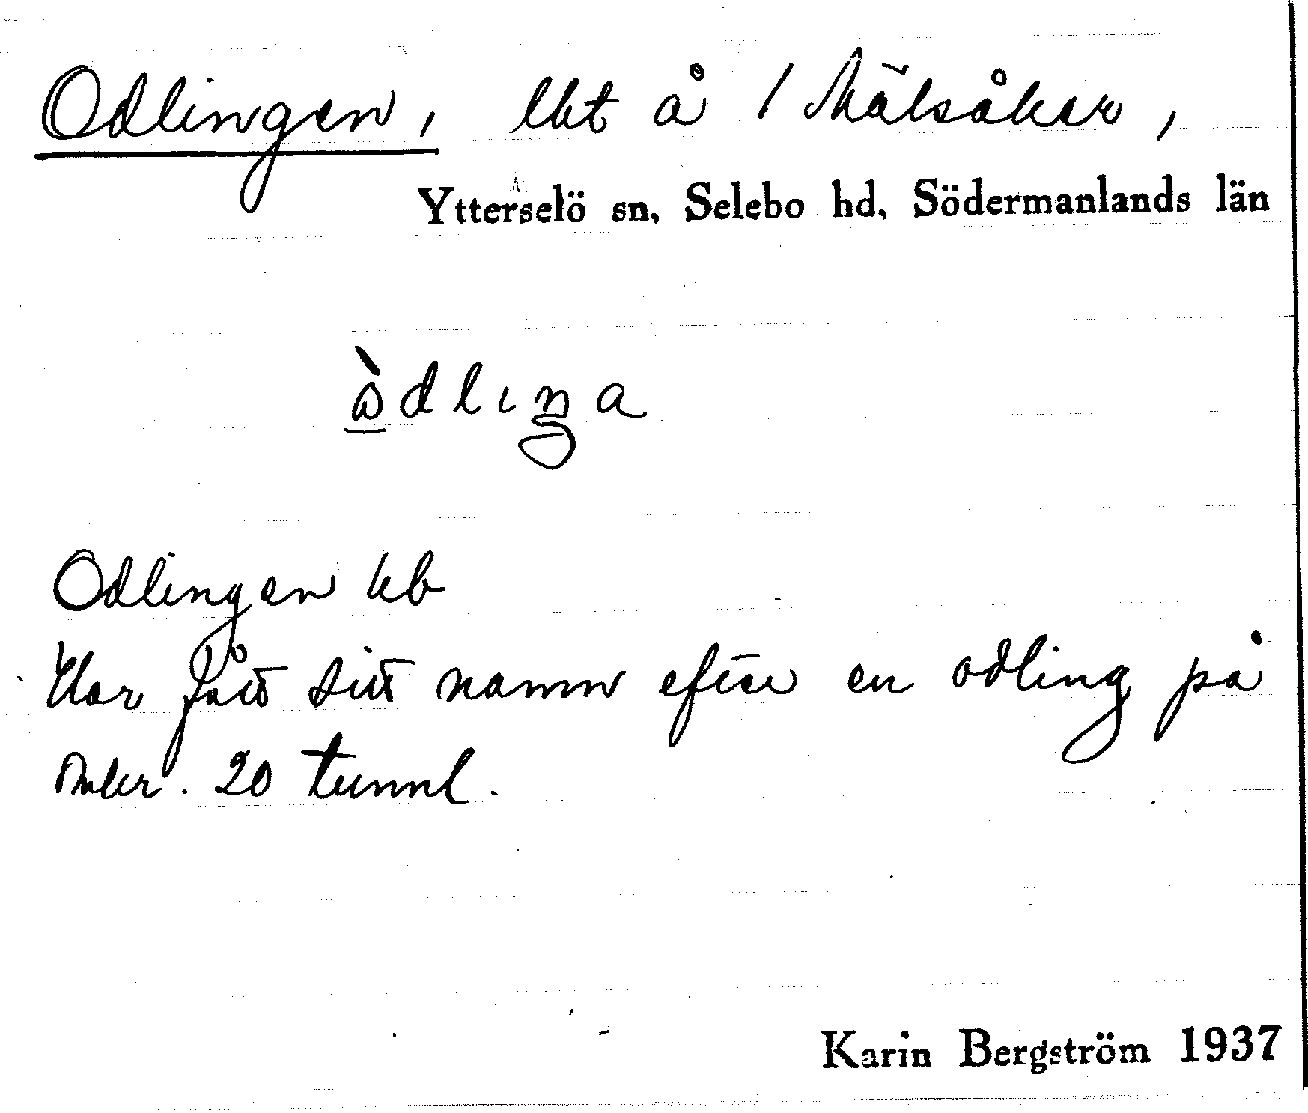 Odlingen, lht å 1 Mälsåker,
Ytterselö sn, Selebo hd, Södermanlands län
òdlıŋa
Odlingen kb
Har fått sitt namn efter en odling på
omkr. 20 tunnl.
Karin Bergström 1937